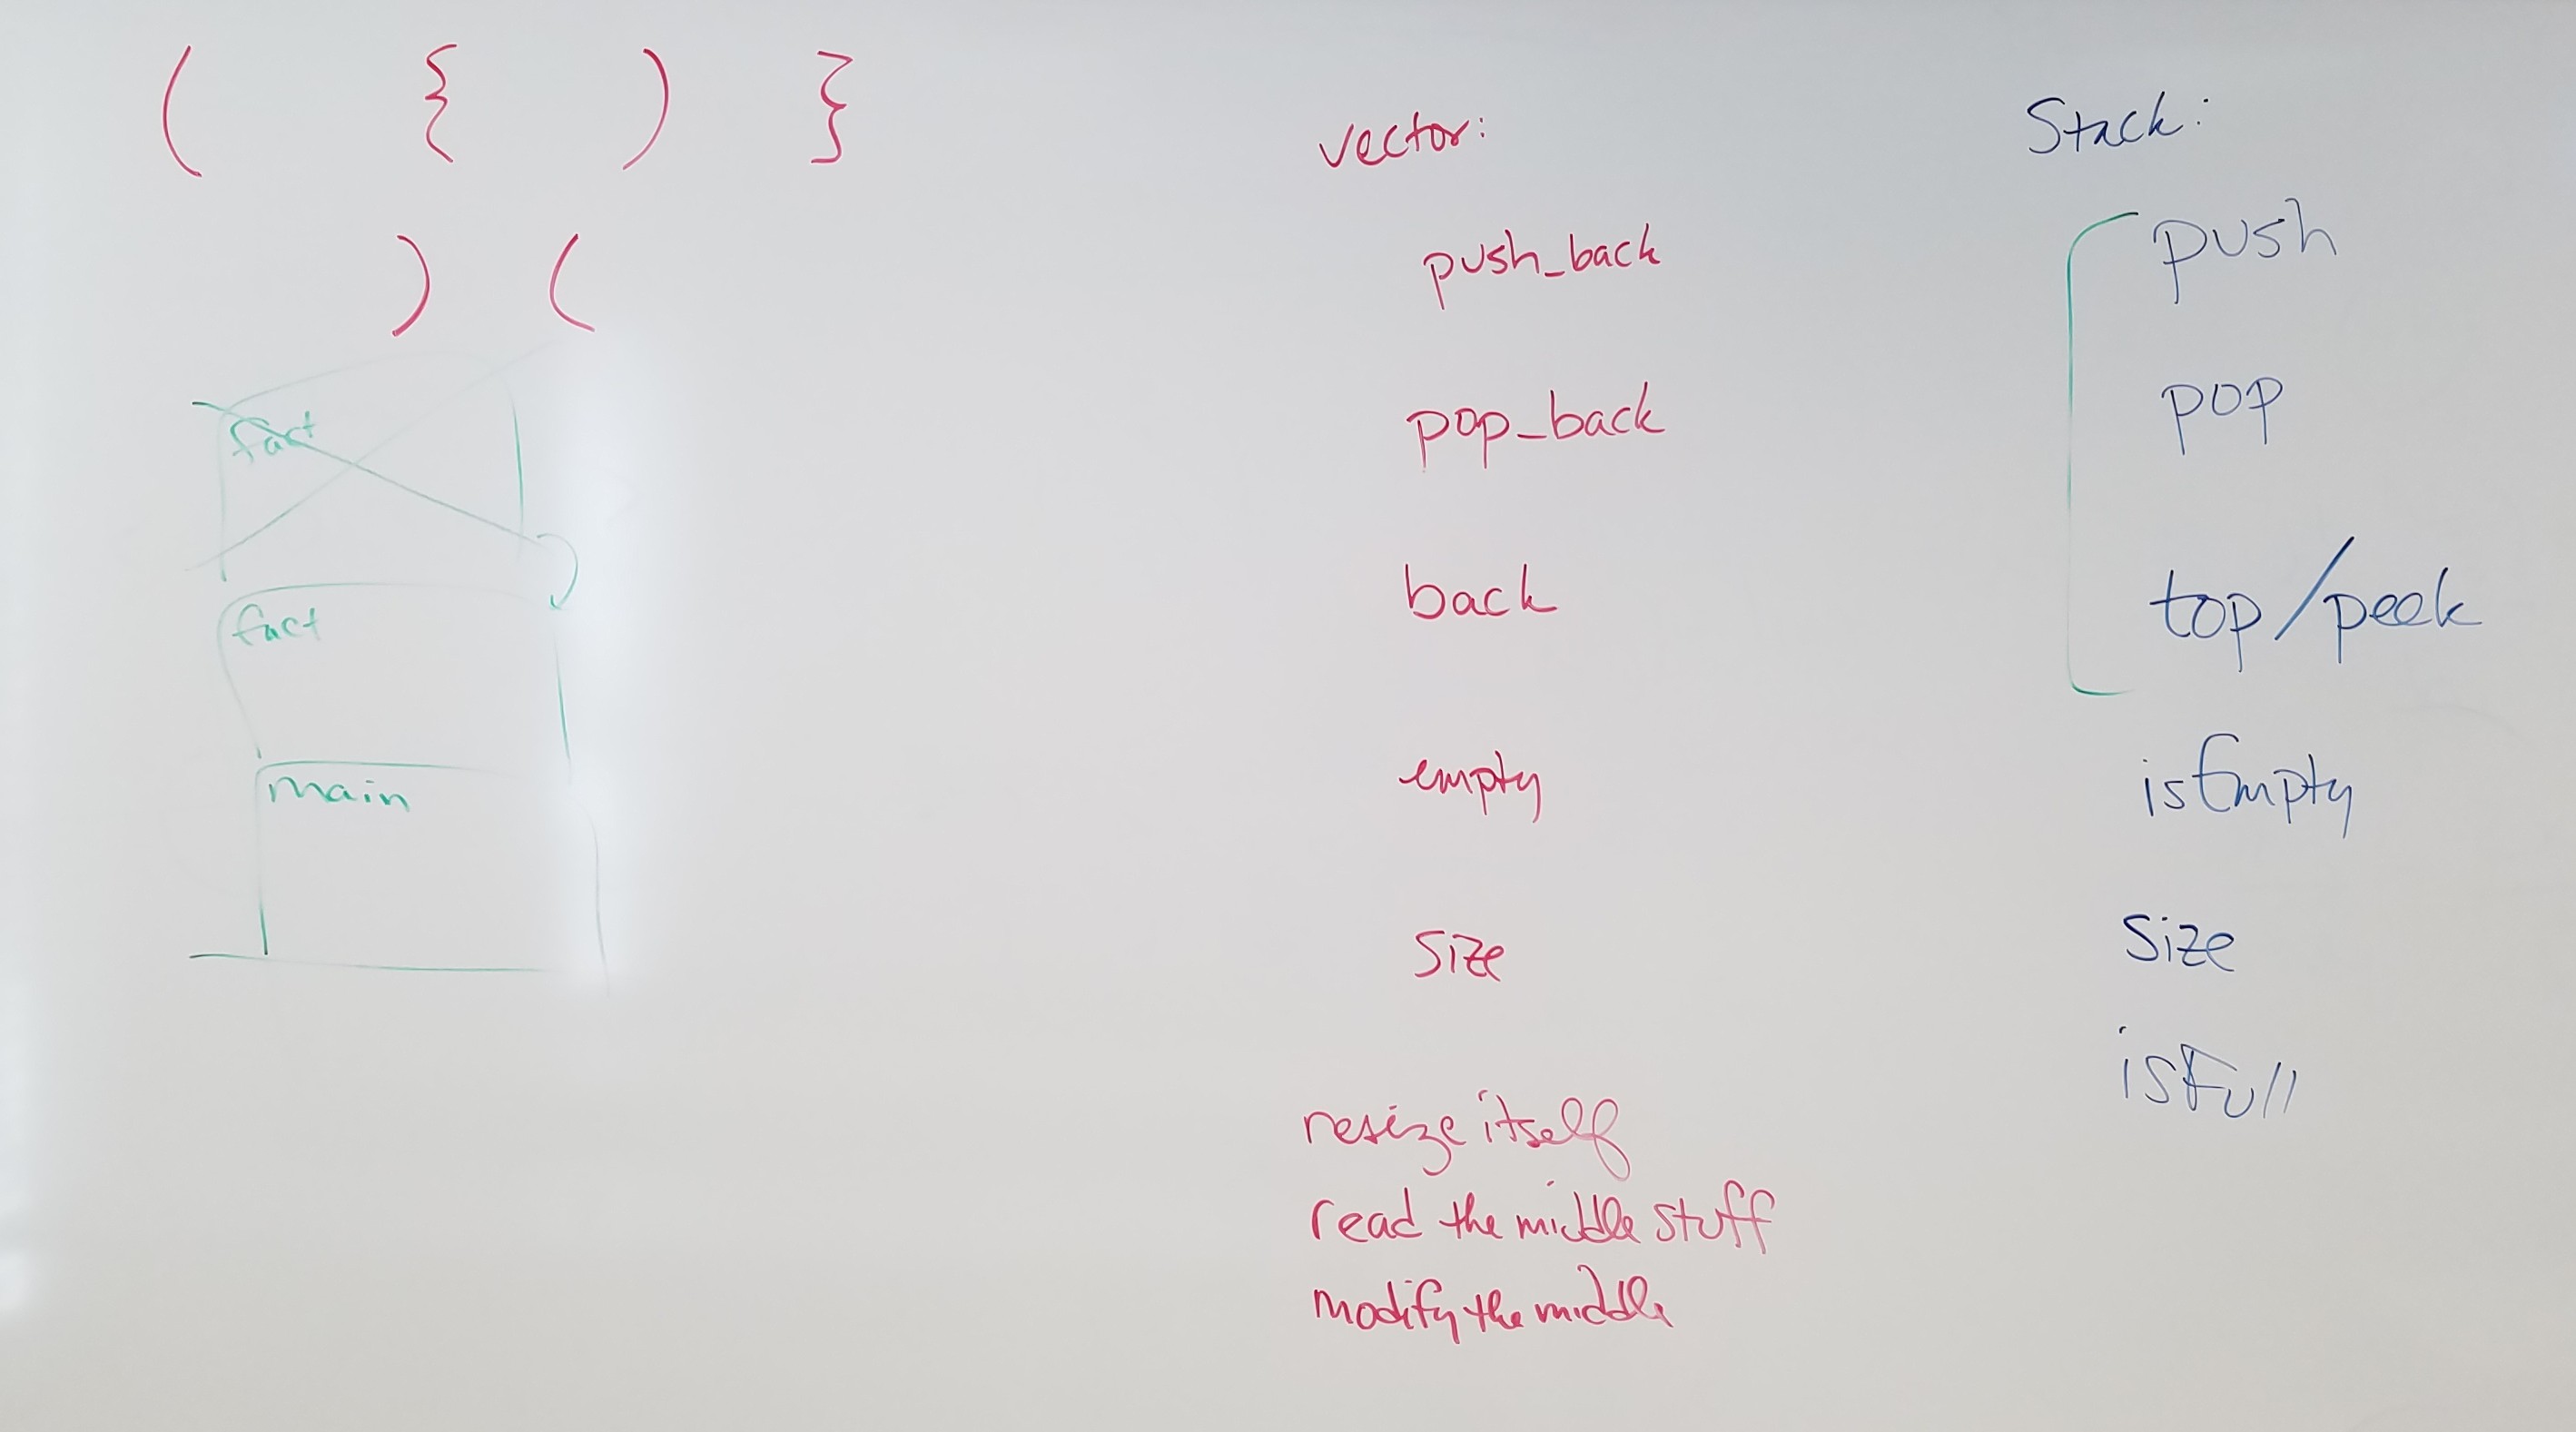 ( { ) }
) (
fact
fact
main
vector:
push_back
pop_back
back
empty
size
resize itself
read the middle stuff
modify the middle
Stack:
push
pop
top/peek
isEmpty
size
isFull